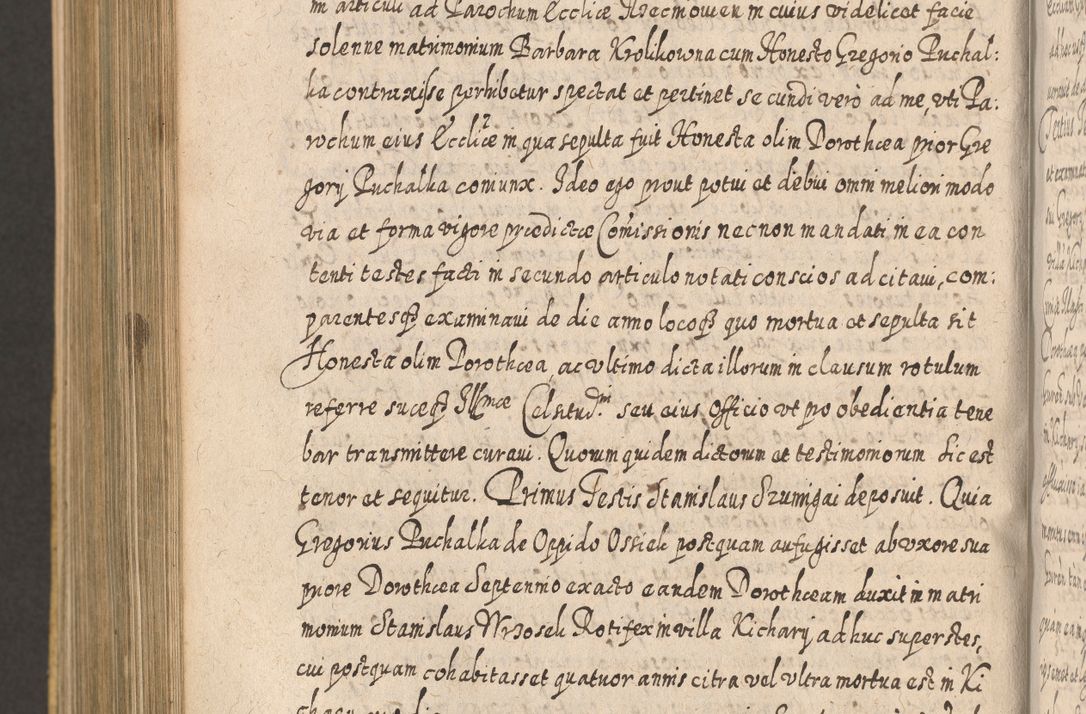 m articuli ad Parochum Ecclīæ Mœcmowen m cuius videlicet facie
solenne matrimonium Barbara Krolikowna cum Honesto Gregorio Puchal:
ka contraxisse perhibetur spectat et pertinet secundi vero ad me, vti Pa:
rochum eius Ecclīæ in qua sepulta fuit Honesta olim Dorothœa prior Gre
gorij Puchalka coniunx. Ideo ego prout potui et debui omni meliori modo
via et forma vigore prœdictœ Comissionis nec non mandati in ea con
tenti testes facti in secundo articulo notati conscios adcitaui, com:
parentesq3 examinaui de die anno locoq3 quo mortua et sepulta sit
Honesta olim Dorothœa, ac vltimo dicta illorum in clausum rotulum
referre suœq3 Illmœ Celsitudni seu eius officio vt pro obedientia tene
bar transmittere curaui. Quorum quidem dictorum et testimoniorum sic est
tenor et sequitur. Primus Testis Stanislaus Szumigai deposuit. Quia
Gregorius Puchalka de Oppido Ossiek postquam aufugisset ab vxore sua
priore Dorothœa Septennio exacto eandem Dorothœam duxit in matri
monium Stanislaus Wrzosek Rotifex in villa Kichary adhuc superstes,
cui postquam cohabitasset quatuor annis citra vel vltra mortua est in Ki